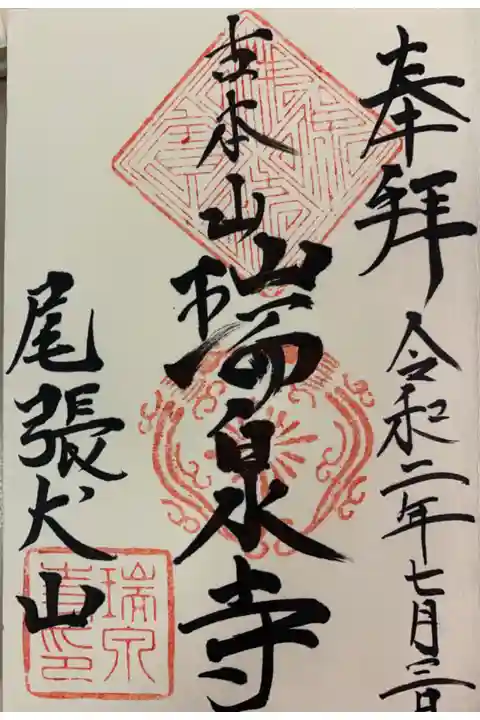 奉拝
令和二年七月三日
古本山
瑞泉寺
尾張犬山
瑞泉